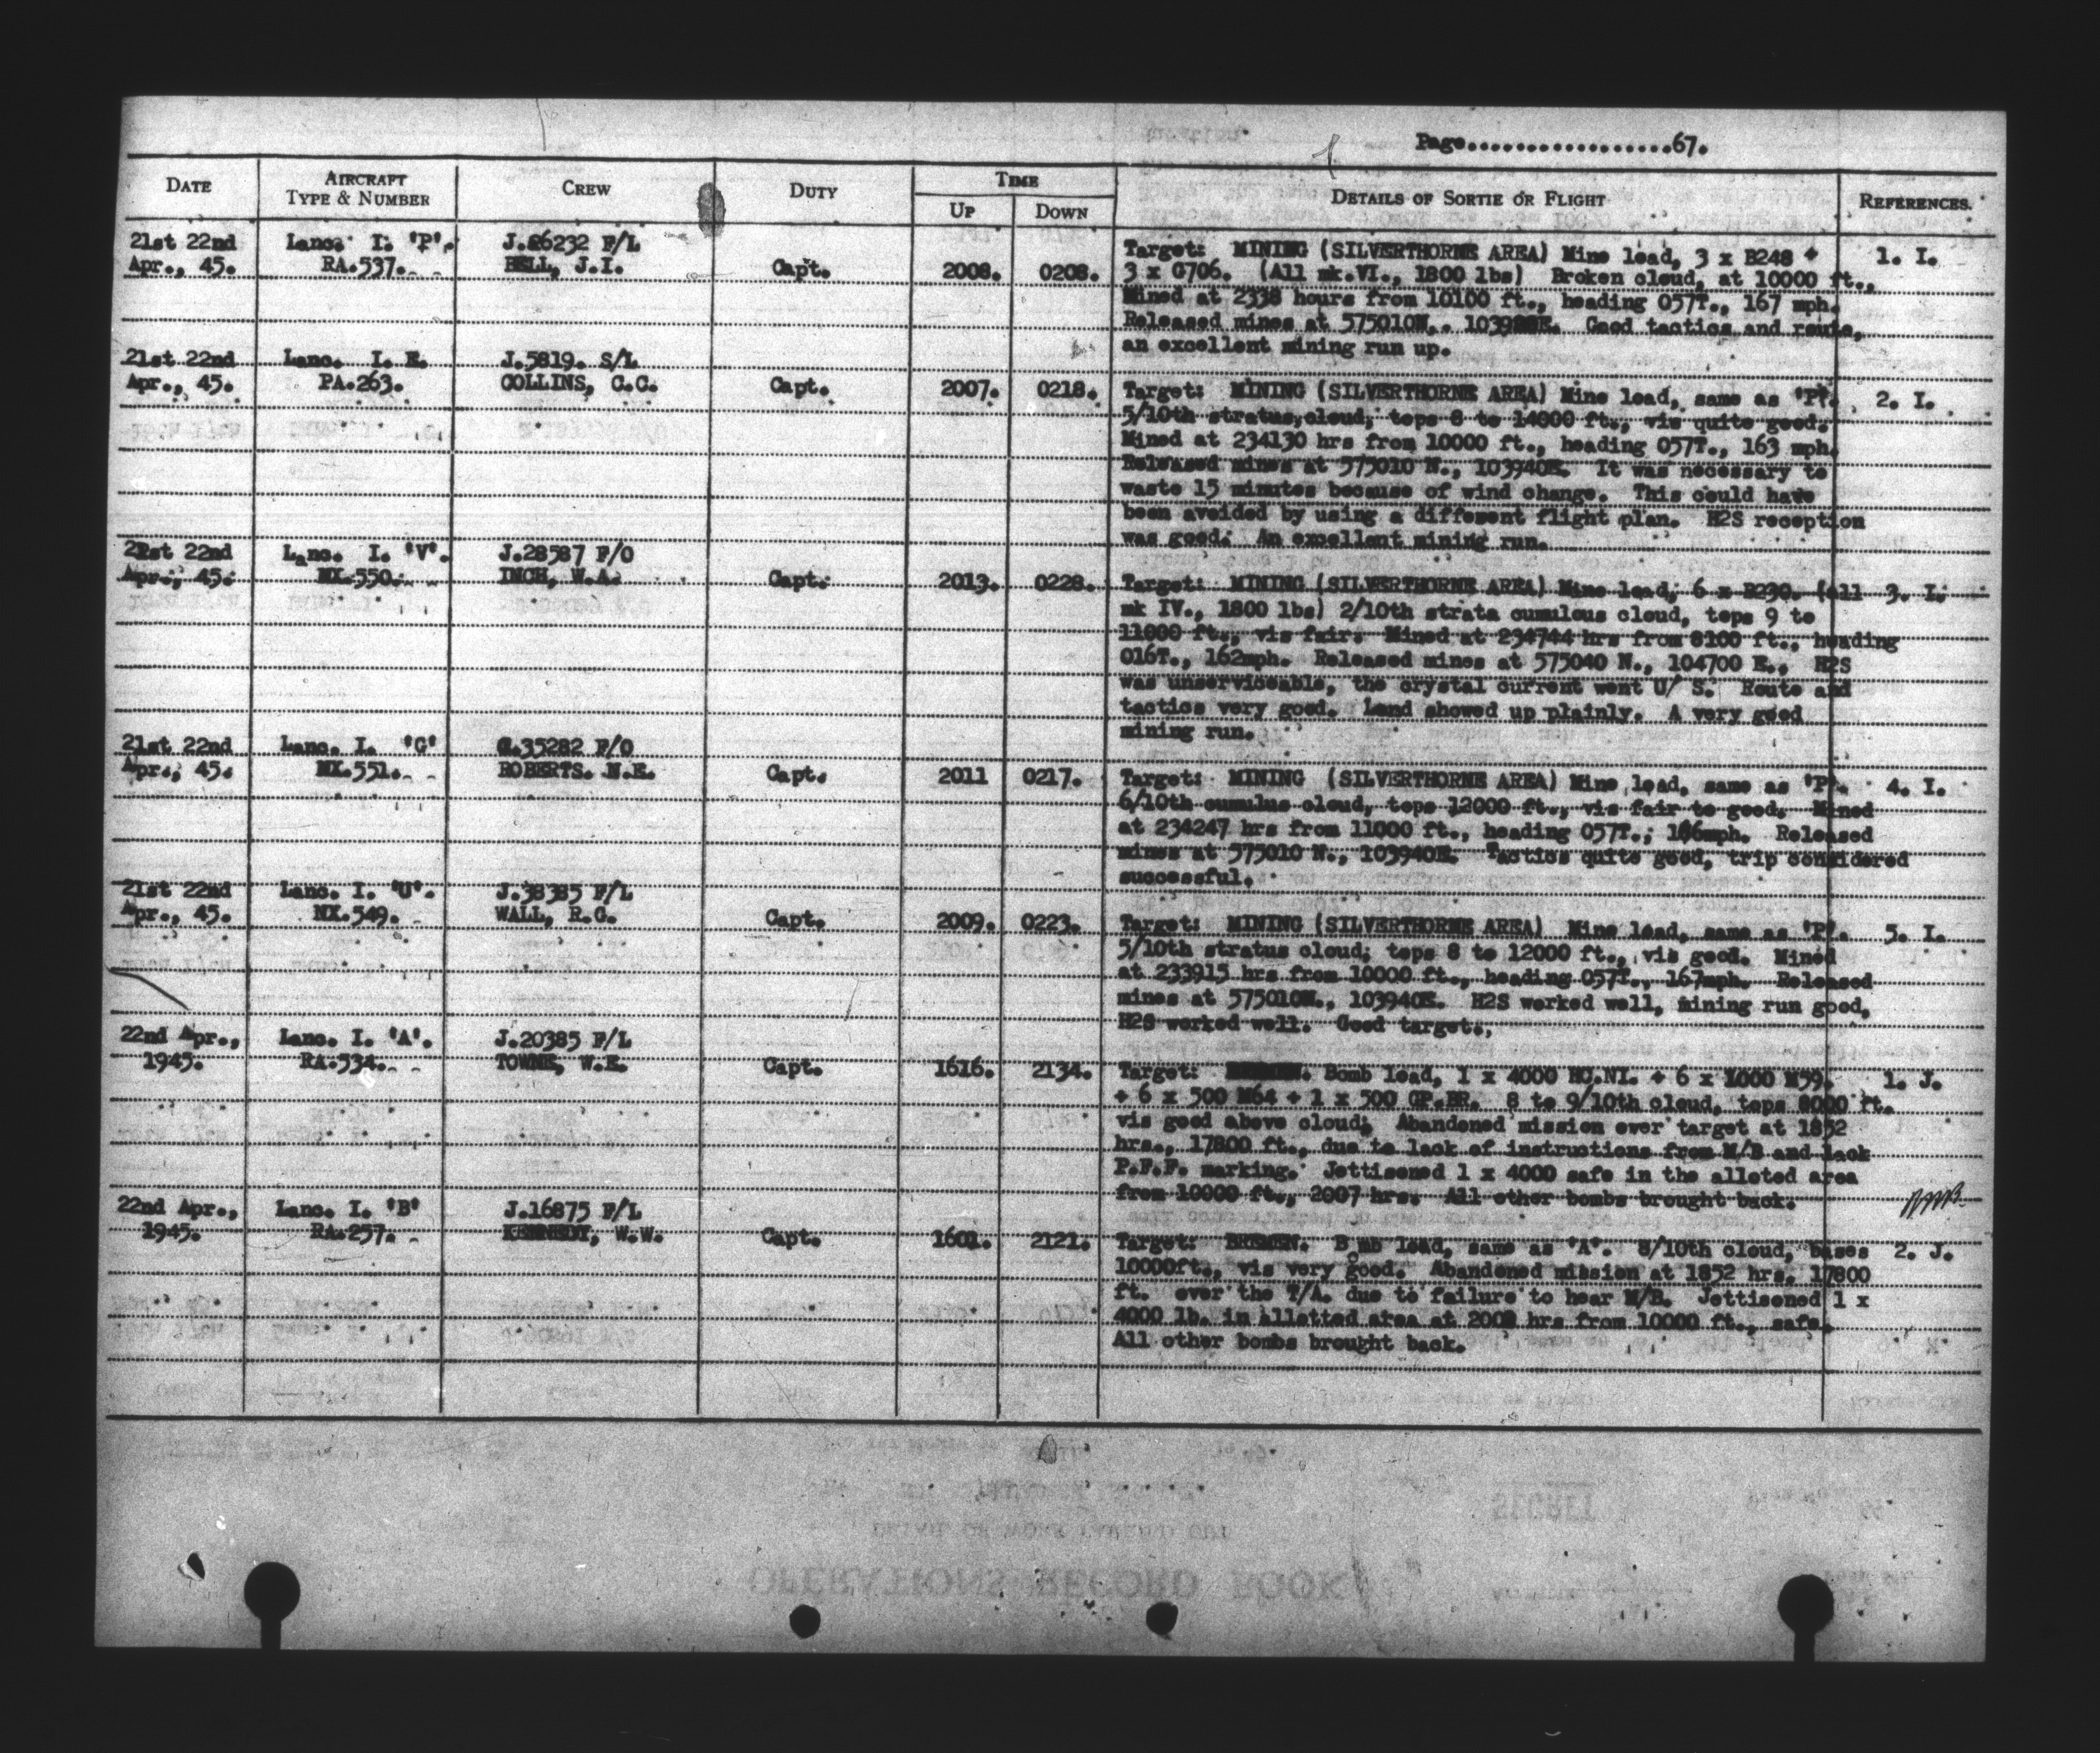 Page..................67.
DATE
AIRCRAFT
TYPE & NUMBER
CREW
DUTY
TIME
UP
DOWN
DETAILS OF SORTIE OR FLIGHT
REFERENCES.
21st 22nd Lanc. I. 'P'. J.26232 F/L
Apr., 45. RA.537. BELL, J.I. Capt. 2008. 0208.
Target: MINING (SILVERTHORNE AREA) Mine load, 3 x B248 + 1. I.
3 x G706. (All mk.VI., 1800 lbs) Broken cloud, at 10000 ft.,
Mined at 2338 hours from 10100 ft., heading 057T., 167 mph.
Released mines at 575010N., Good tactics and route,
an excellent mining run up.
21st 22nd Lanc. I. E. J.5819. S/L
Apr., 45. PA.263. COLLINS, C.C. Capt. 2007. 0218.
Target: MINING (SILVERTHORNE AREA) Mine load, same as 'P'. 2. I.
5/10th stratus,cloud, tops 8 to 14000 ft., vis quite good.
Mined at 234130 hrs from 10000 ft., heading 057T., 163 mph.
Released mines at 575010 N., 103940E. It was necessary to
waste 15 minutes because of wind change. This could have
been avoided by using a different flight plan. H2S reception
was good. An excellent mining run.
21st 22nd Lanc. I. 'V'. J.28587 F/O
Apr., 45. NX.550. INCH, W.A. Capt. 2013. 0228.
Target: MINING (SILVERTHORNE AREA) Mine load, 6 x B230. (All 3. I.
mk IV., 1800 lbs) 2/10th strata cumulous cloud, tops 9 to
11000 ft., vis fair. Mined at 234744 hrs from 8100 ft., heading
016T., 162mph. Released mines at 575040 N., 104700 E., H2S
was unserviceable, the crystal current went U/ S. Route and
tactics very good. Land showed up plainly. A very good
mining run.
21st 22nd Lanc. I. 'G' C.35282 F/O
Apr., 45. NX.551. ROBERTS. N.E. Capt. 2011 0217.
Target: MINING (SILVERTHORNE AREA) Mine load, same as 'P'. 4. I.
6/10th cumulus cloud, tops 12000 ft., vis fair to good. Mined
at 234247 hrs from 11000 ft., heading 057T., 166mph. Released
mines at 575010 N., 103940E. Tactics quite good, trip considered
successful.
21st 22nd Lanc. I. 'U'. J.38385 F/L
Apr., 45. NX.549. WALL, R.G. Capt. 2009. 0223.
Target: MINING (SILVERTHORNE AREA) Mine load, same as 'P'. 5. I.
5/10th stratus cloud; tops 8 to 12000 ft., vis good. Mined
at 233915 hrs from 10000 ft., heading 057T., 167mph. Released
mines at 575010N., 103940E. H2S worked well, mining run good,
H2S worked well. Good target.,
22nd Apr., Lanc. I. 'A'. J.20385 F/L
1945. RA.534. TOWNE, W.E. Capt. 1616. 2134.
Target: BREMEN. Bomb load, 1 x 4000 HC.NI. + 6 x 1000 M59. 1. J.
+ 6 x 500 M64 + 1 x 500 GP.BR. 8 to 9/10th cloud, tops 8000 ft.
vis good above cloud; Abandoned mission over target at 1852
hrs., 17800 ft., due to lack of instructions from M/B and lack
P.F.F. marking. Jettisoned 1 x 4000 safe in the alloted area
from 10000 ft., 2007 hrs. All other bombs brought back.
22nd Apr., Lanc. I. 'B' J.16875 F/L
1945. RA.257. KENNEDY, W.W. Capt. 1601. 2121.
Target: BREMEN. Bomb load, same as 'A'. 8/10th cloud, bases 2. J.
10000ft., vis very good. Abandoned mission at 1852 hrs. 17800
ft. over the T/A. due to failure to hear M/B. Jettisoned 1 x
4000 lb. in allotted area at 2002 hrs from 10000 ft., safe.
All other bombs brought back.